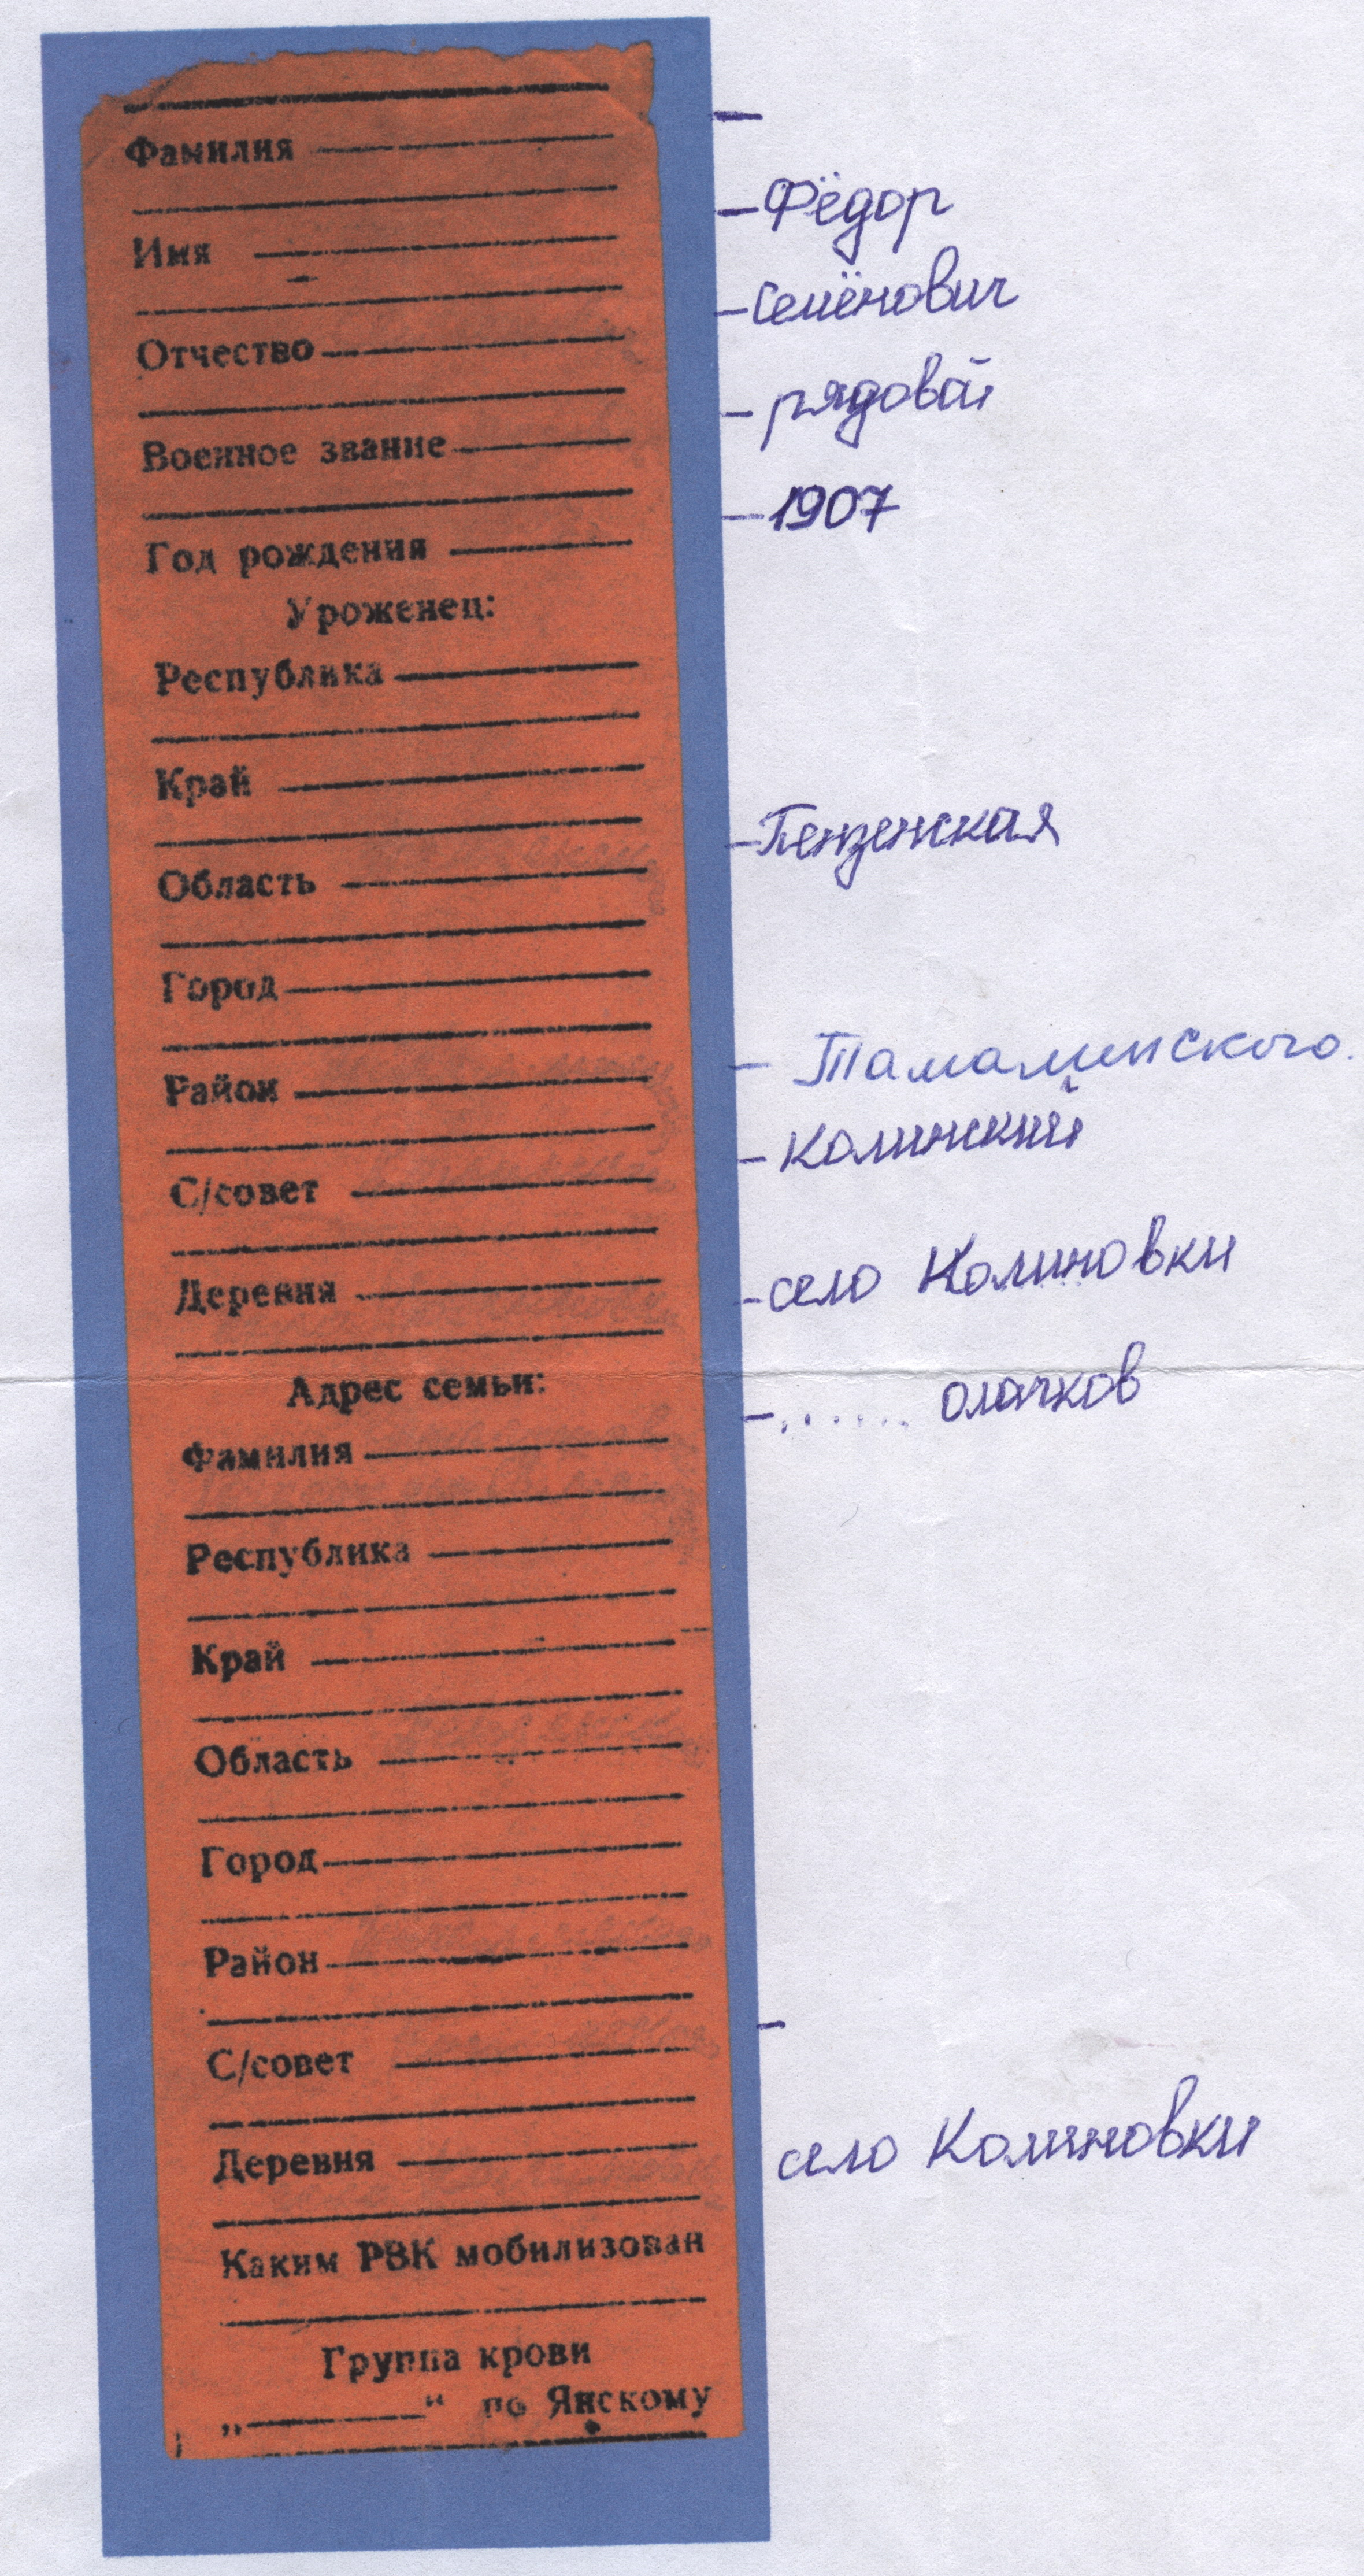 Фамилия
Фёдор
Имя
Семёнович
Отчество
рядовой
Военное звание
1907
Год рождения
Уроженец:
Республика
Край
Пензенская
Область
Город
Тамалинского.
Район
Калинский
С/совет
село Калиновки
Деревня
Адрес семьи:
...... олачков
Фамилия
Республика
Край
Область
Город
Район
С/совет
село Калиновки
Деревня
Каким РВК мобилизован
Группа крови
„ “ по Янскому